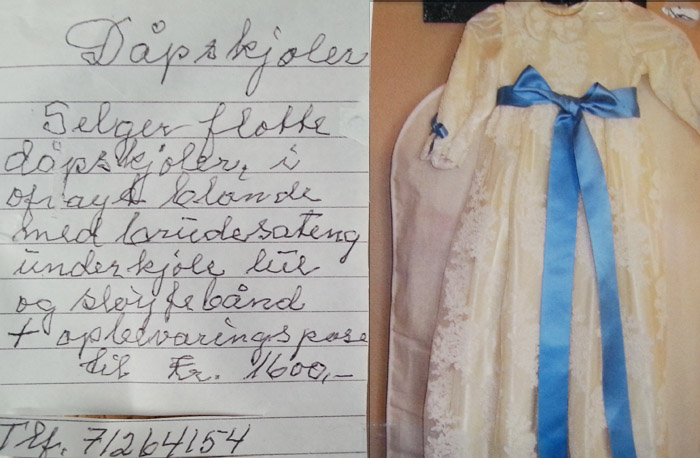 Dåpskjoler
Selger flotte
dåpskjoler, i
ofrayt blonde
med brudesateng
underkjole lue
og sløyfebånd
+ oppbevaringspose
til Kr. 1600,-
Tlf. 71264154